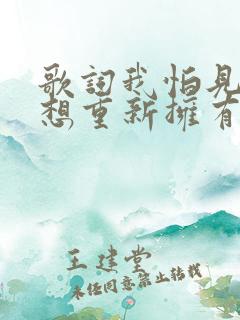 歌词我怕见
想重新擁有
王建堂
未经同意禁止转载